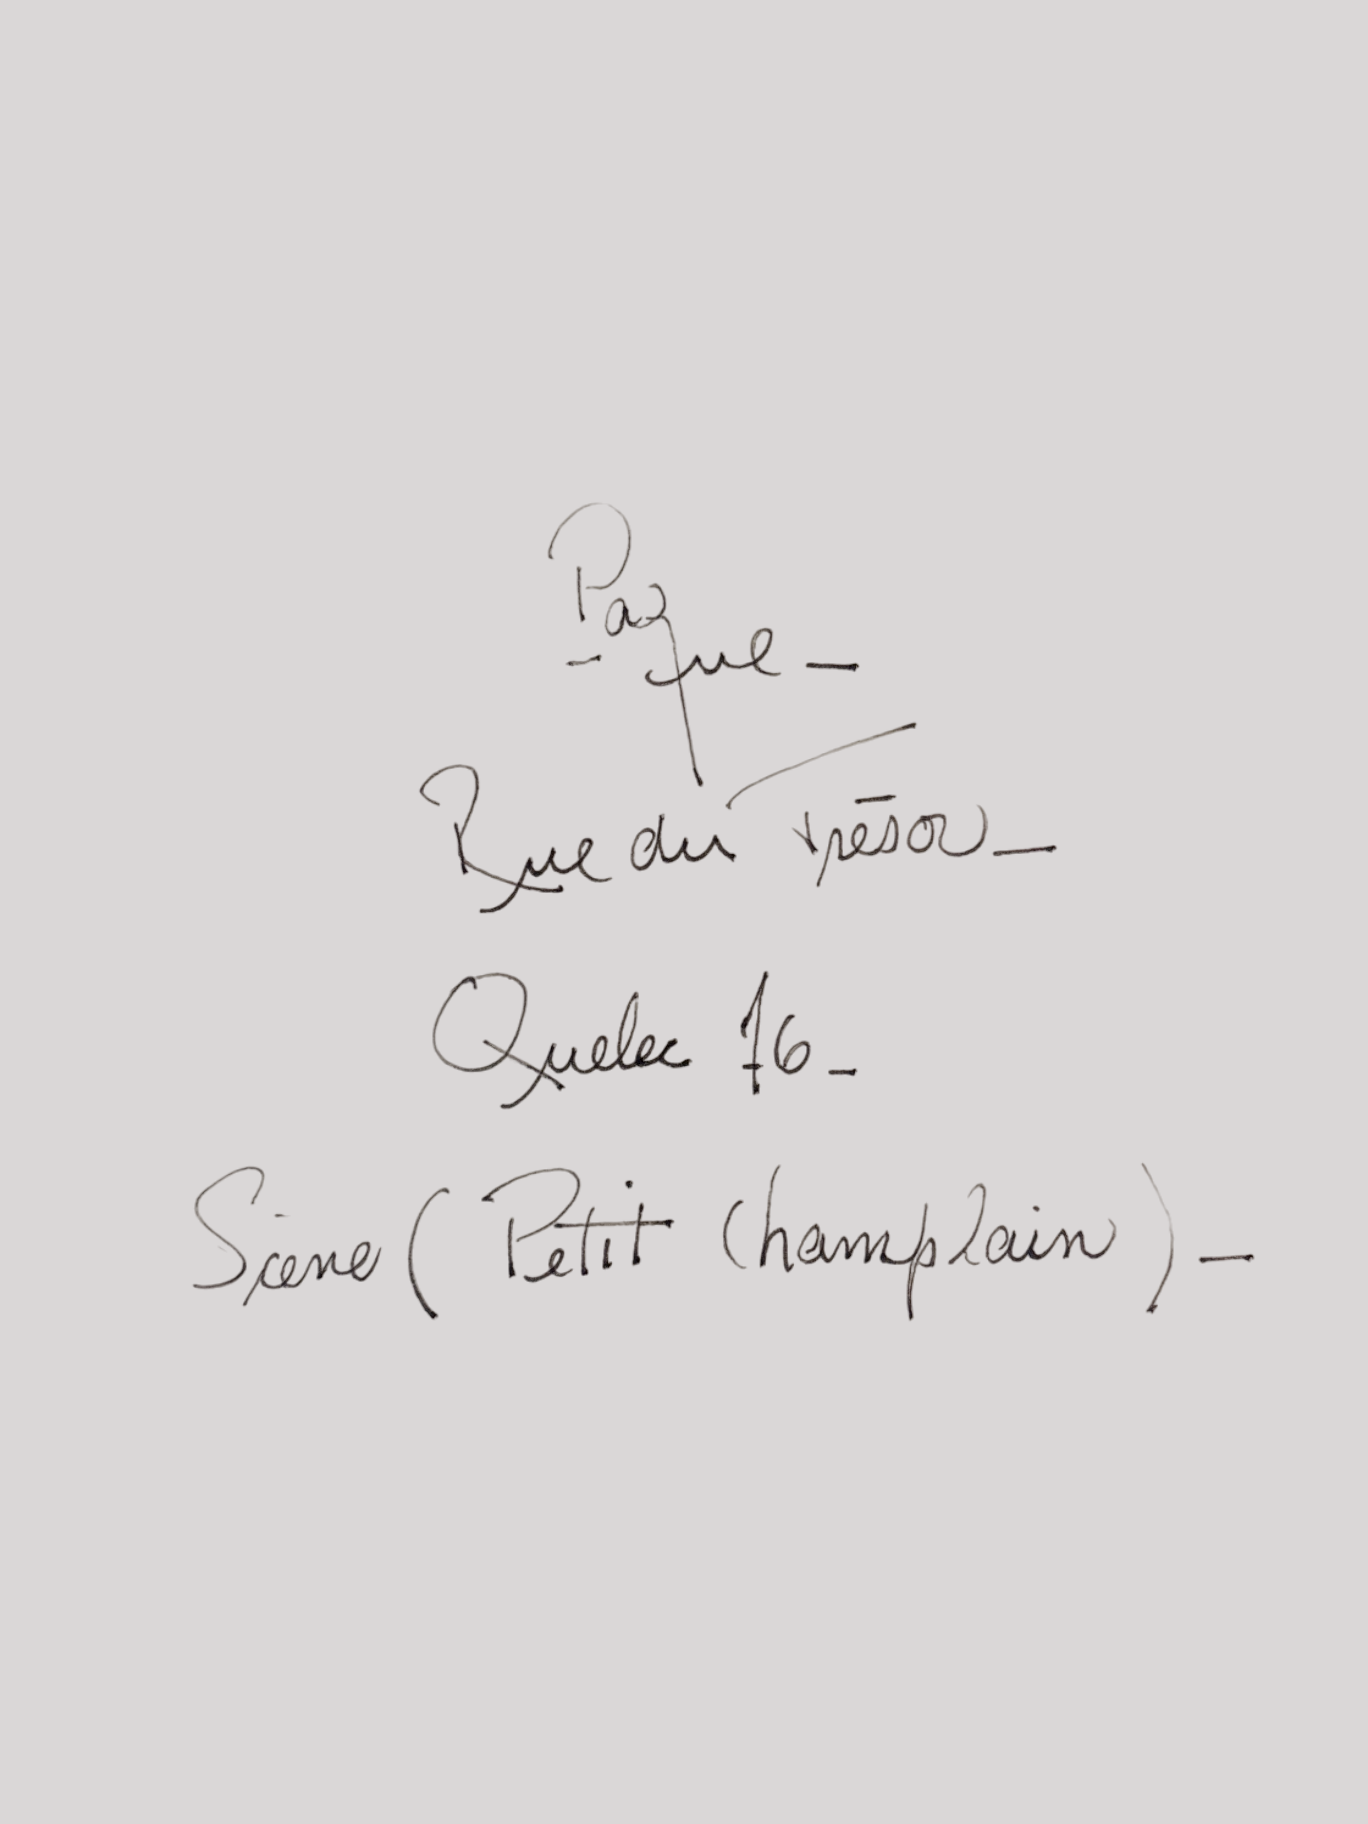 Paque -
Rue du Trésor -
Québec 76 -
Scène (Petit Champlain) -